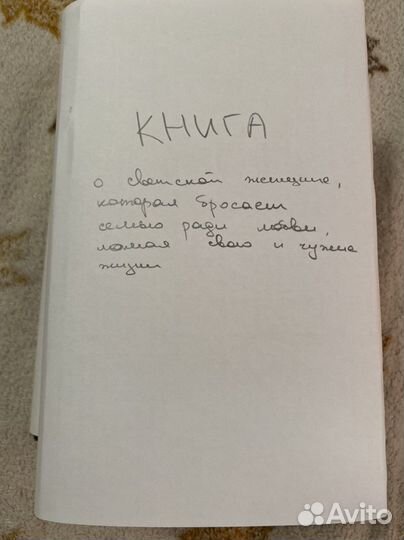 КНИГА
о светской женщине,
которая бросает
семью ради любви,
ломая свою и чужие
жизни
Avito